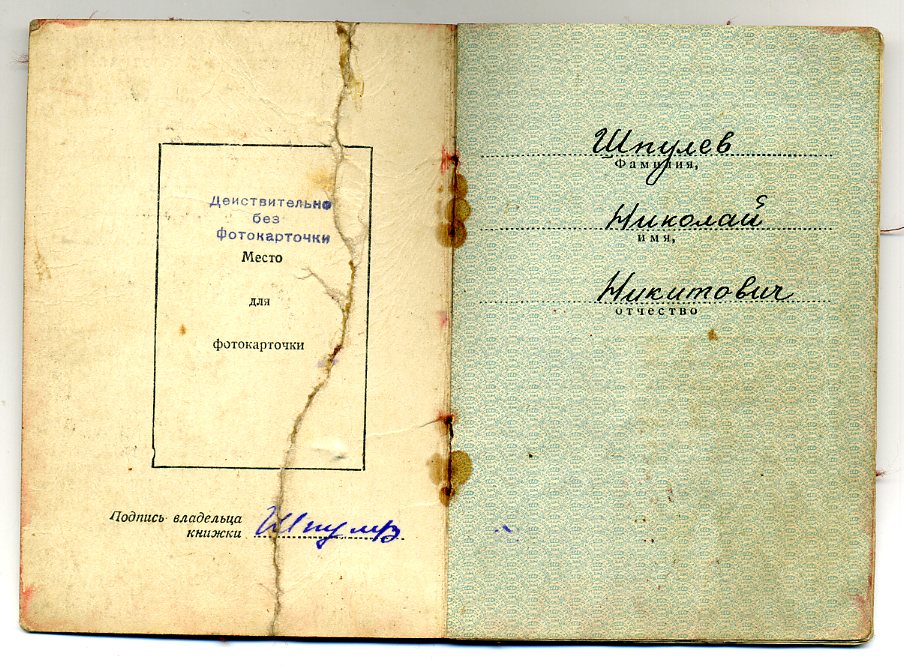 Действительно
без
фотокарточки
Место
для
фотокарточки
Подпись владельца
книжки Шпулев
Шпулев
Фамилия,
Николай
имя,
Никитович
отчество